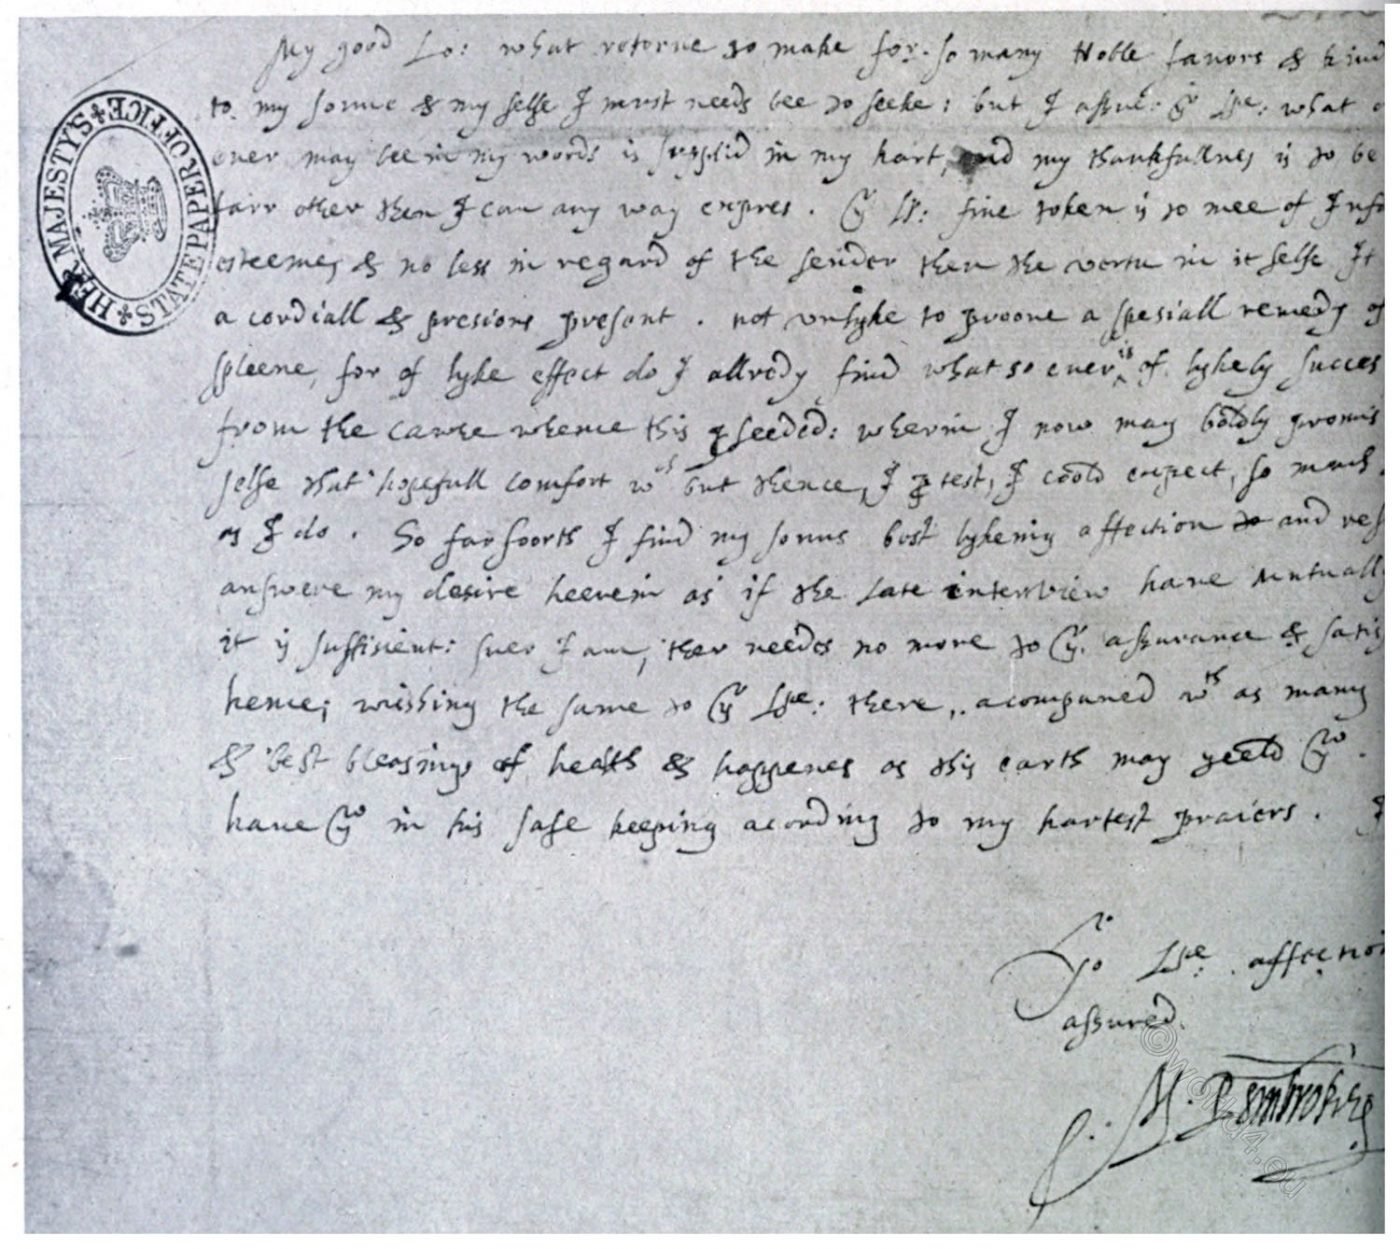 My good Lo: what retorne to make for so many Noble favors & kind
to my sonne & my selfe I must needs bee to seeke: but I assure yr Lpe: what
ever may bee in my words is supplid in my hart, and my thankfullnes is to be
farr other then I can any way expres. Yr Lp: fine token is to mee of Inf
esteemes & no less in regard of the sender then the vertu in it selfe It
a cordiall & presious present. not unlyke to proove a spesiall remedy of
spleene, for of lyke effect do I allredy find what so ever is of lykely succes
from the cawse whence this pseeded: wherin I now may boldly promis
selfe that hopefull comfort wch but thence, I ptest, I coold expect, so much
as I do. So farfoorth I find my sonns best lykeing affection to and res
answere my desire heerein as if the late interview have mutually
it is suffisient: suer I am, ther needes no more to yr assurance & satis
hence; wishing the same to yr Lpe: there, acompaned wth as many
& best blessings of health & happenes as this earth may yeeld you.
have you in his safe keeping acording to my hartest praiers. I
Yo Lpe: affectio
assured.
M. Pembroke
HER MAJESTY'S STATE PAPER OFFICE
©world4.eu